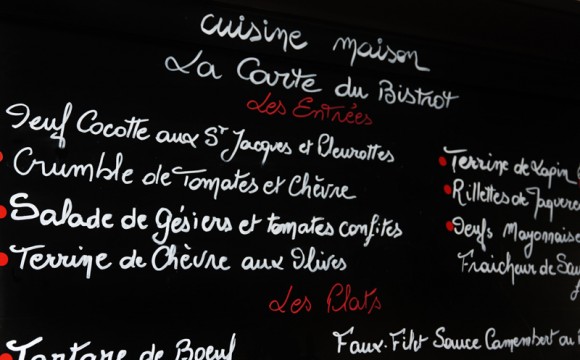 cuisine maison
La Carte du Bistrot
Les Entrées
Oeuf Cocotte aux St Jacques et Pleurottes
Crumble de Tomates et Chèvre
Salade de gésiers et tomates confites
Terrine de Chèvre aux Olives
Terrine de Lapin
Rillettes de
Oeufs Mayonnaise
Fraicheur de
Les Plats
Tartare de Boeuf
Faux-Filet Sauce Camembert au